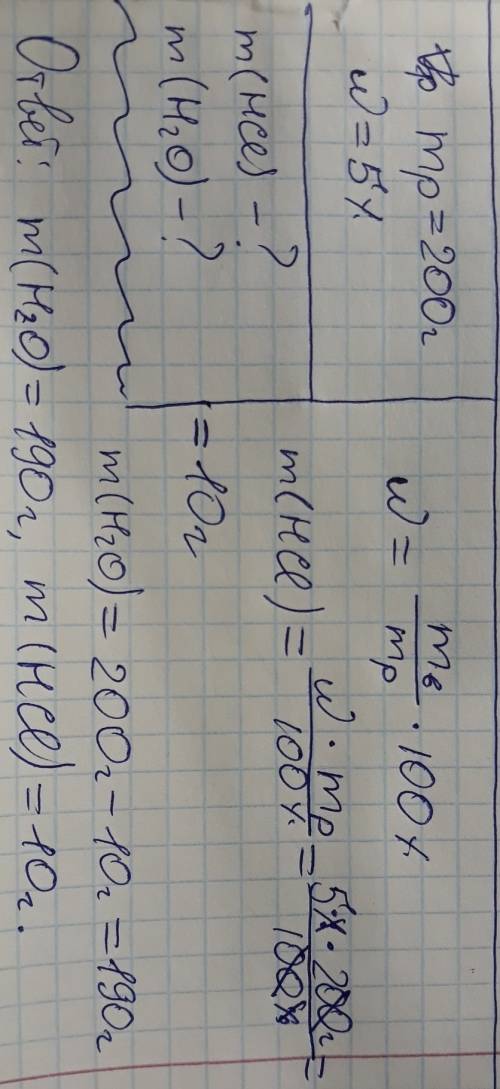 mр = 200г
w = 5%
m(HCl) - ?
m(H₂O) - ?
w = mв/mр · 100%
m(HCl) = w · mр/100% = 5% · 200г/100% =
= 10г
m(H₂O) = 200г - 10г = 190г
Ответ: m(H₂O) = 190г, m(HCl) = 10г.